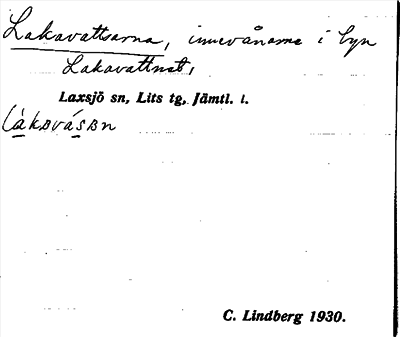 Lakavattsarna, innevånarne i byn
Lakavattnet,
Laxsjö sn, Lits tg, Jämtl. l.
C. Lindberg 1930.